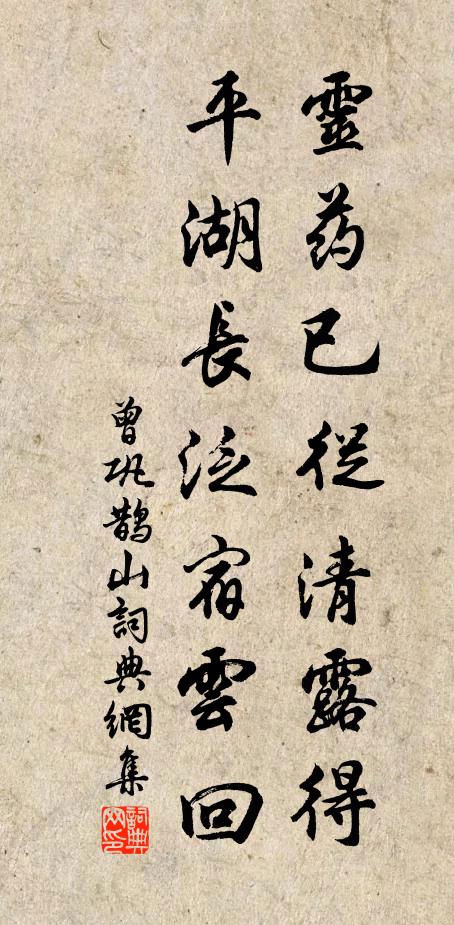 靈药已從清露得
平湖長泛宿雲回
曾巩鵲山詞典網集
詞典网印